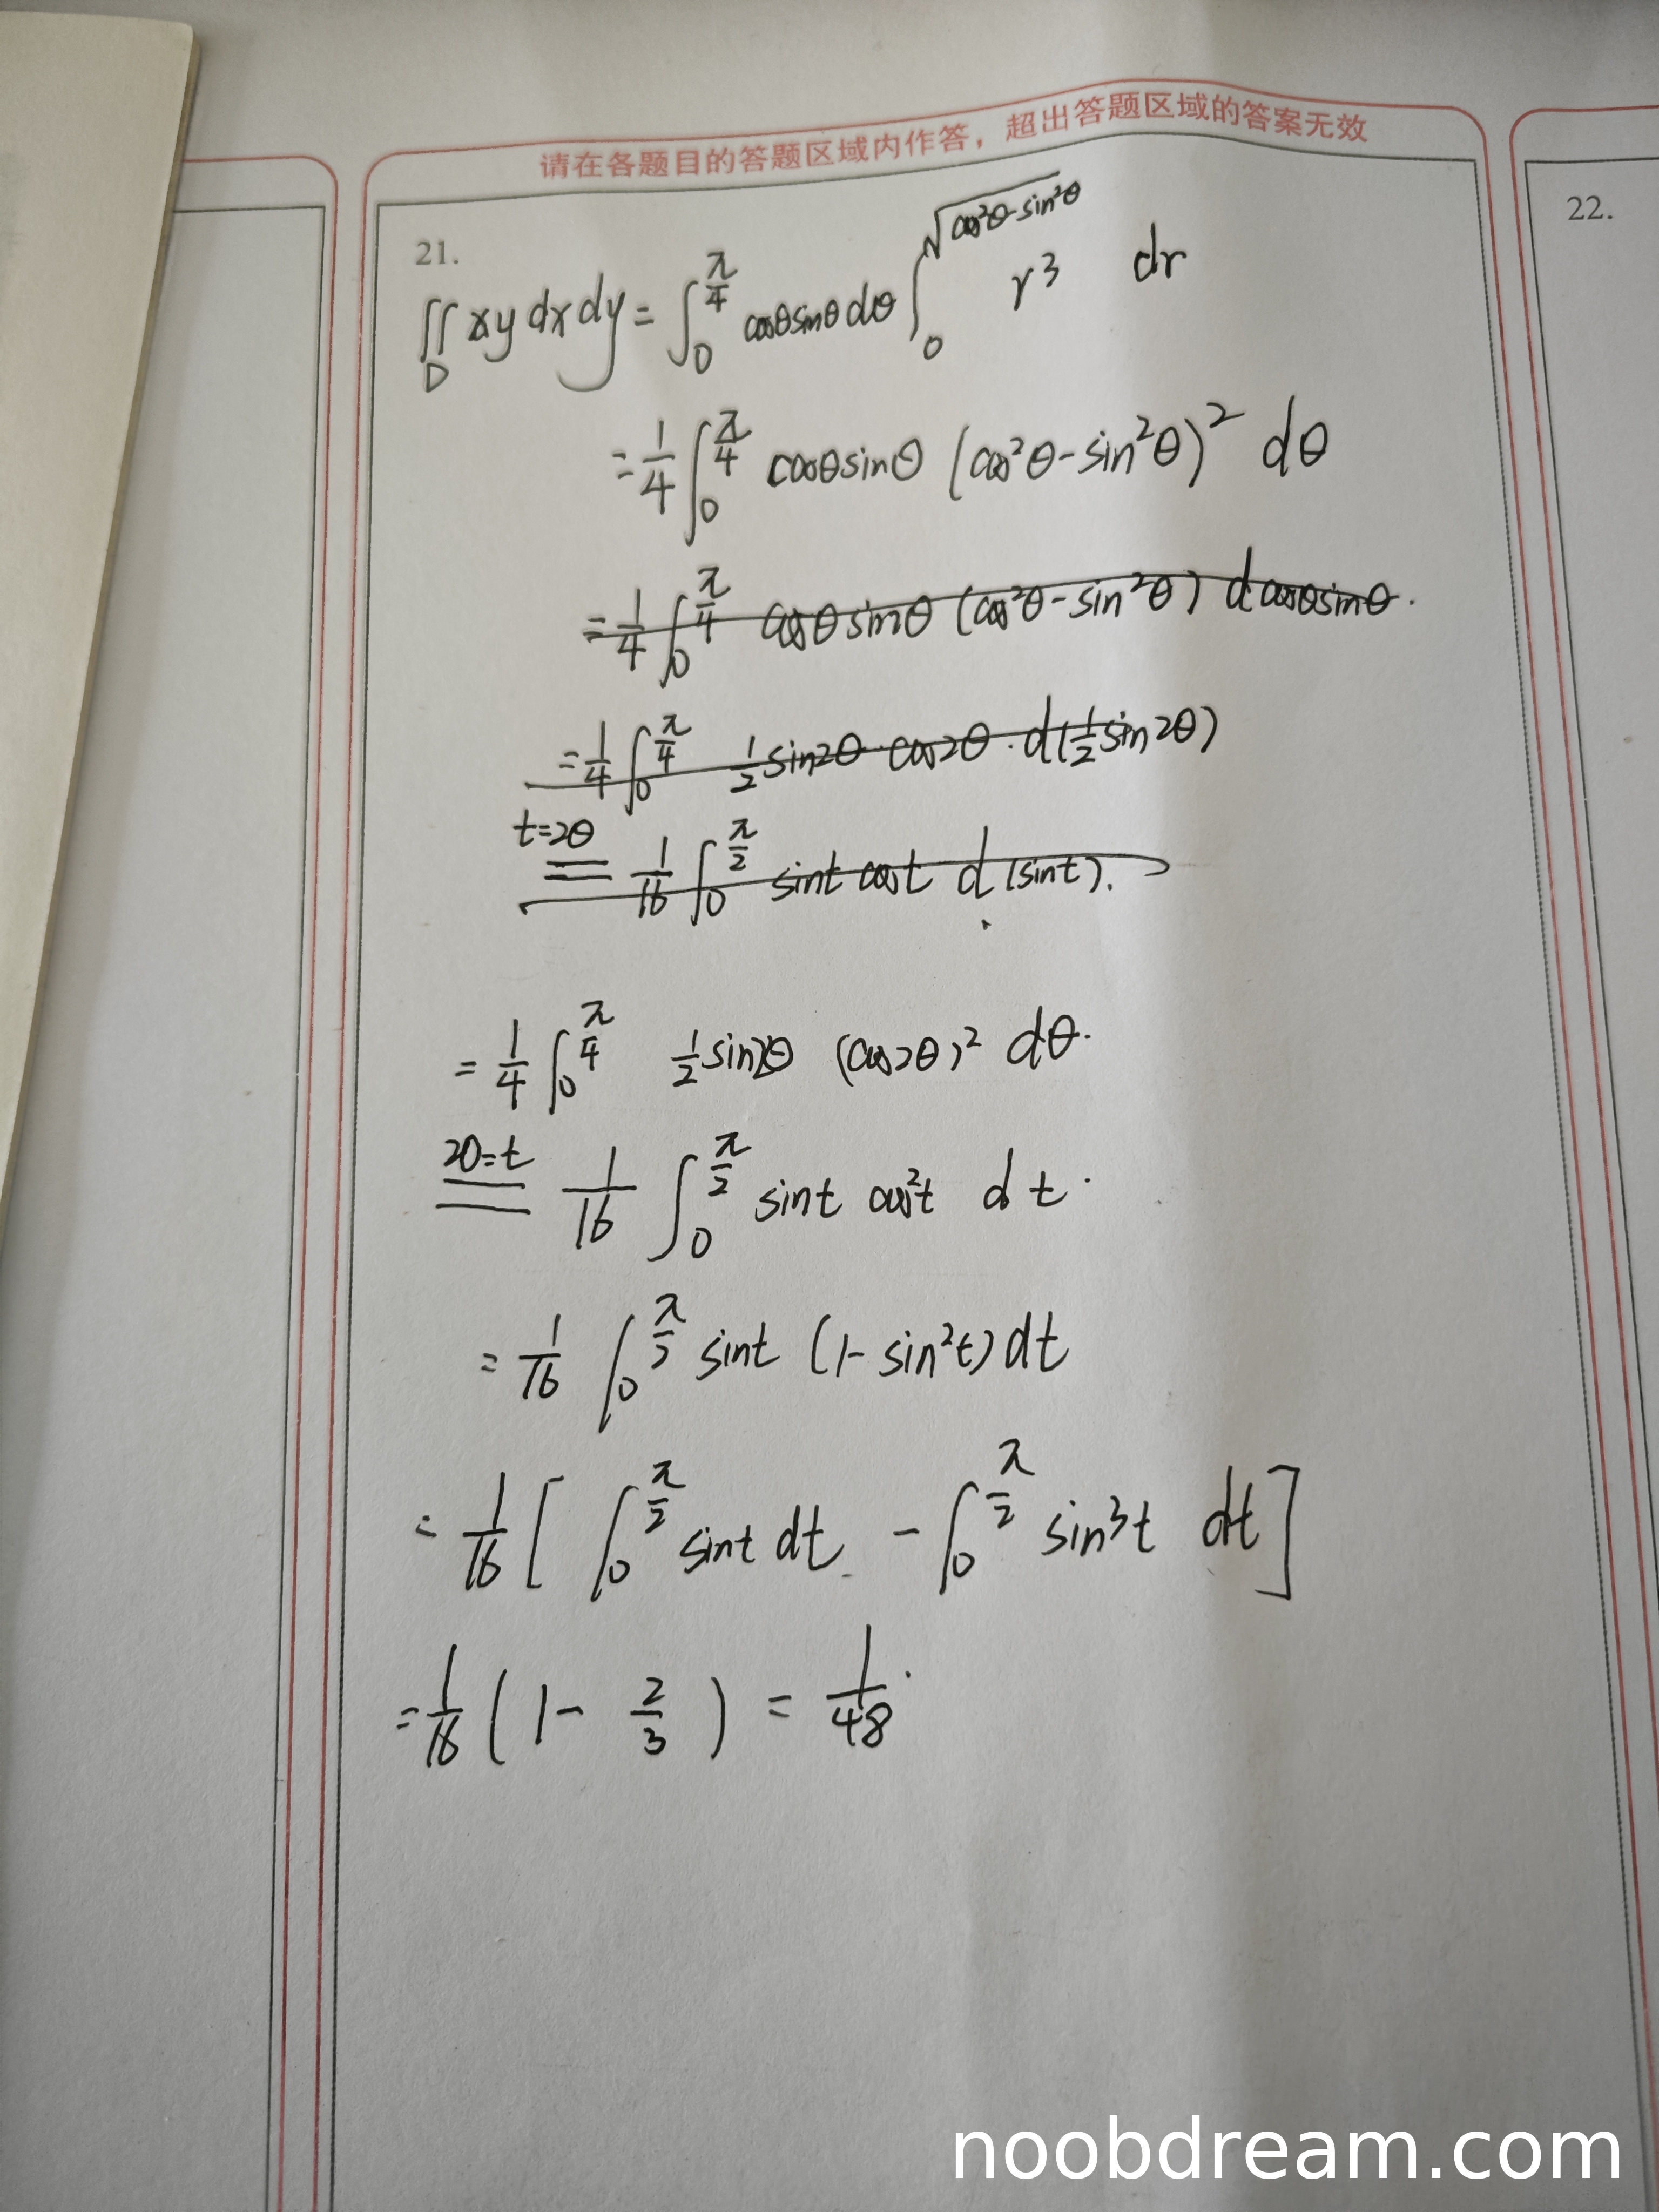 请在各题目的答题区域内作答，超出答题区域的答案无效
21.
22.
∬_D xy dx dy = ∫_0^{π/4} cosθsinθ dθ ∫_0^{√(cos²θ-sin²θ)} r³ dr
= 1/4 ∫_0^{π/4} cosθsinθ (cos²θ-sin²θ)² dθ
= 1/4 ∫_0^{π/4} cosθsinθ (cos²θ-sin²θ) d cosθsinθ.
= 1/4 ∫_0^{π/4} 1/2 sin2θ·cos2θ·d(1/2 sin2θ)
t=2θ
= 1/16 ∫_0^{π/2} sint cost d(sint).
= 1/4 ∫_0^{π/4} 1/2 sin2θ (cos2θ)² dθ.
2θ=t
= 1/16 ∫_0^{π/2} sint cos²t dt.
= 1/16 ∫_0^{π/2} sint (1-sin²t)dt
= 1/16 [ ∫_0^{π/2} sint dt - ∫_0^{π/2} sin³t dt ]
= 1/16 ( 1 - 2/3 ) = 1/48.
noobdream.com